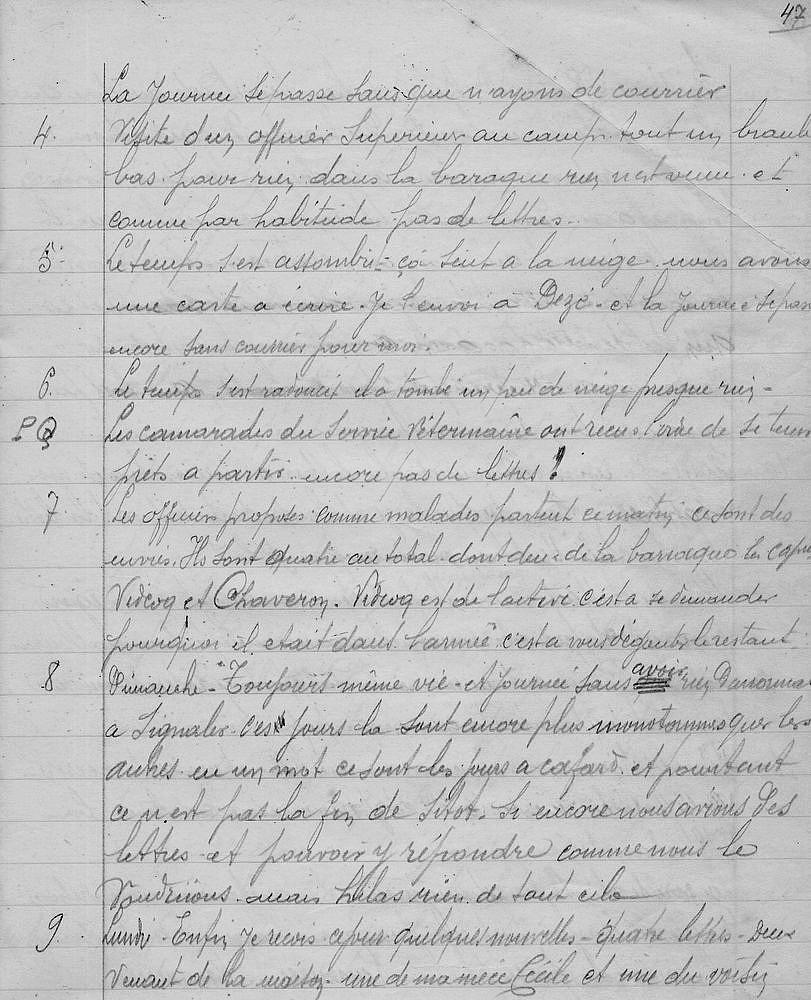 47
La Journee se passe sans que n ayons de courrier
4. Visite d'un officier Superieur au camp. tout un branle
bas pour rien dans la baraque rien n'est venu. et
comme par habitude pas de lettres -
5. Le temps s'est assombrit - ça sent a la neige. nous avons
une carte a écrire. Je l'envoi à Dezé - et la Journeé se passe
encore sans courrier pour moi.
6. Le temps s'est radoucit il a tombé un peu de neige presque rien -
PQ Les camarades du Service Véterinaîre ont recus l'ordre de se tenir
prêts a partir. encore pas de lettres !
7. Les officiers proposes comme malades partent ce matin ce sont des
Ils sont quatre au total dont deux de la barraque les
Vidcoq et Chaveron. Vidcoq est de l'active. c'est a se demander
pourquoi il etait dans l'armeé c'est a vous dégouter le restant.
8. Dimanche - Toujours même vie - et journeé sans avoir rien d'anormal
a Signaler. ces jours la sont encore plus monotonnes quer les
autres. en un mot ce sont les jours a cafard. et pourtant
ce n est pas la fin de sitot. Si encore nous avions des
lettres et pouvoir y répondre comme nous le
Voudrions. mais hélas rien de tout cela
9. Lundi - Enfin Je recois quelques nouvelles - quatre lettres - Deux
Venant de la maison - une de ma niece Cécile et une du voisin